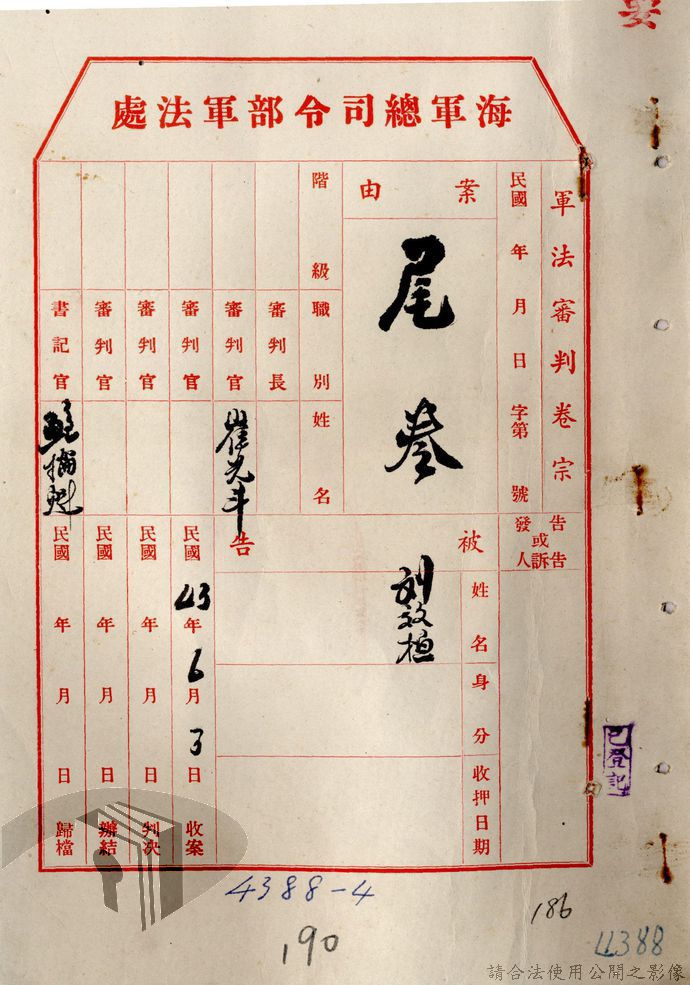 海軍總司令部軍法處
軍法審判卷宗
民國 年 月 日 字第 號
案由
尾卷
告發或告訴人
被告
姓名
劉效植
身分
收押日期
階級
職別
姓名
審判長
審判官
崔光斗
審判官
審判官
審判官
書記官
民國43年6月3日收案
民國 年 月 日判決
民國 年 月 日辦結
民國 年 月 日歸檔
已登記
4388-4
190
186
4388
請合法使用公開之影像